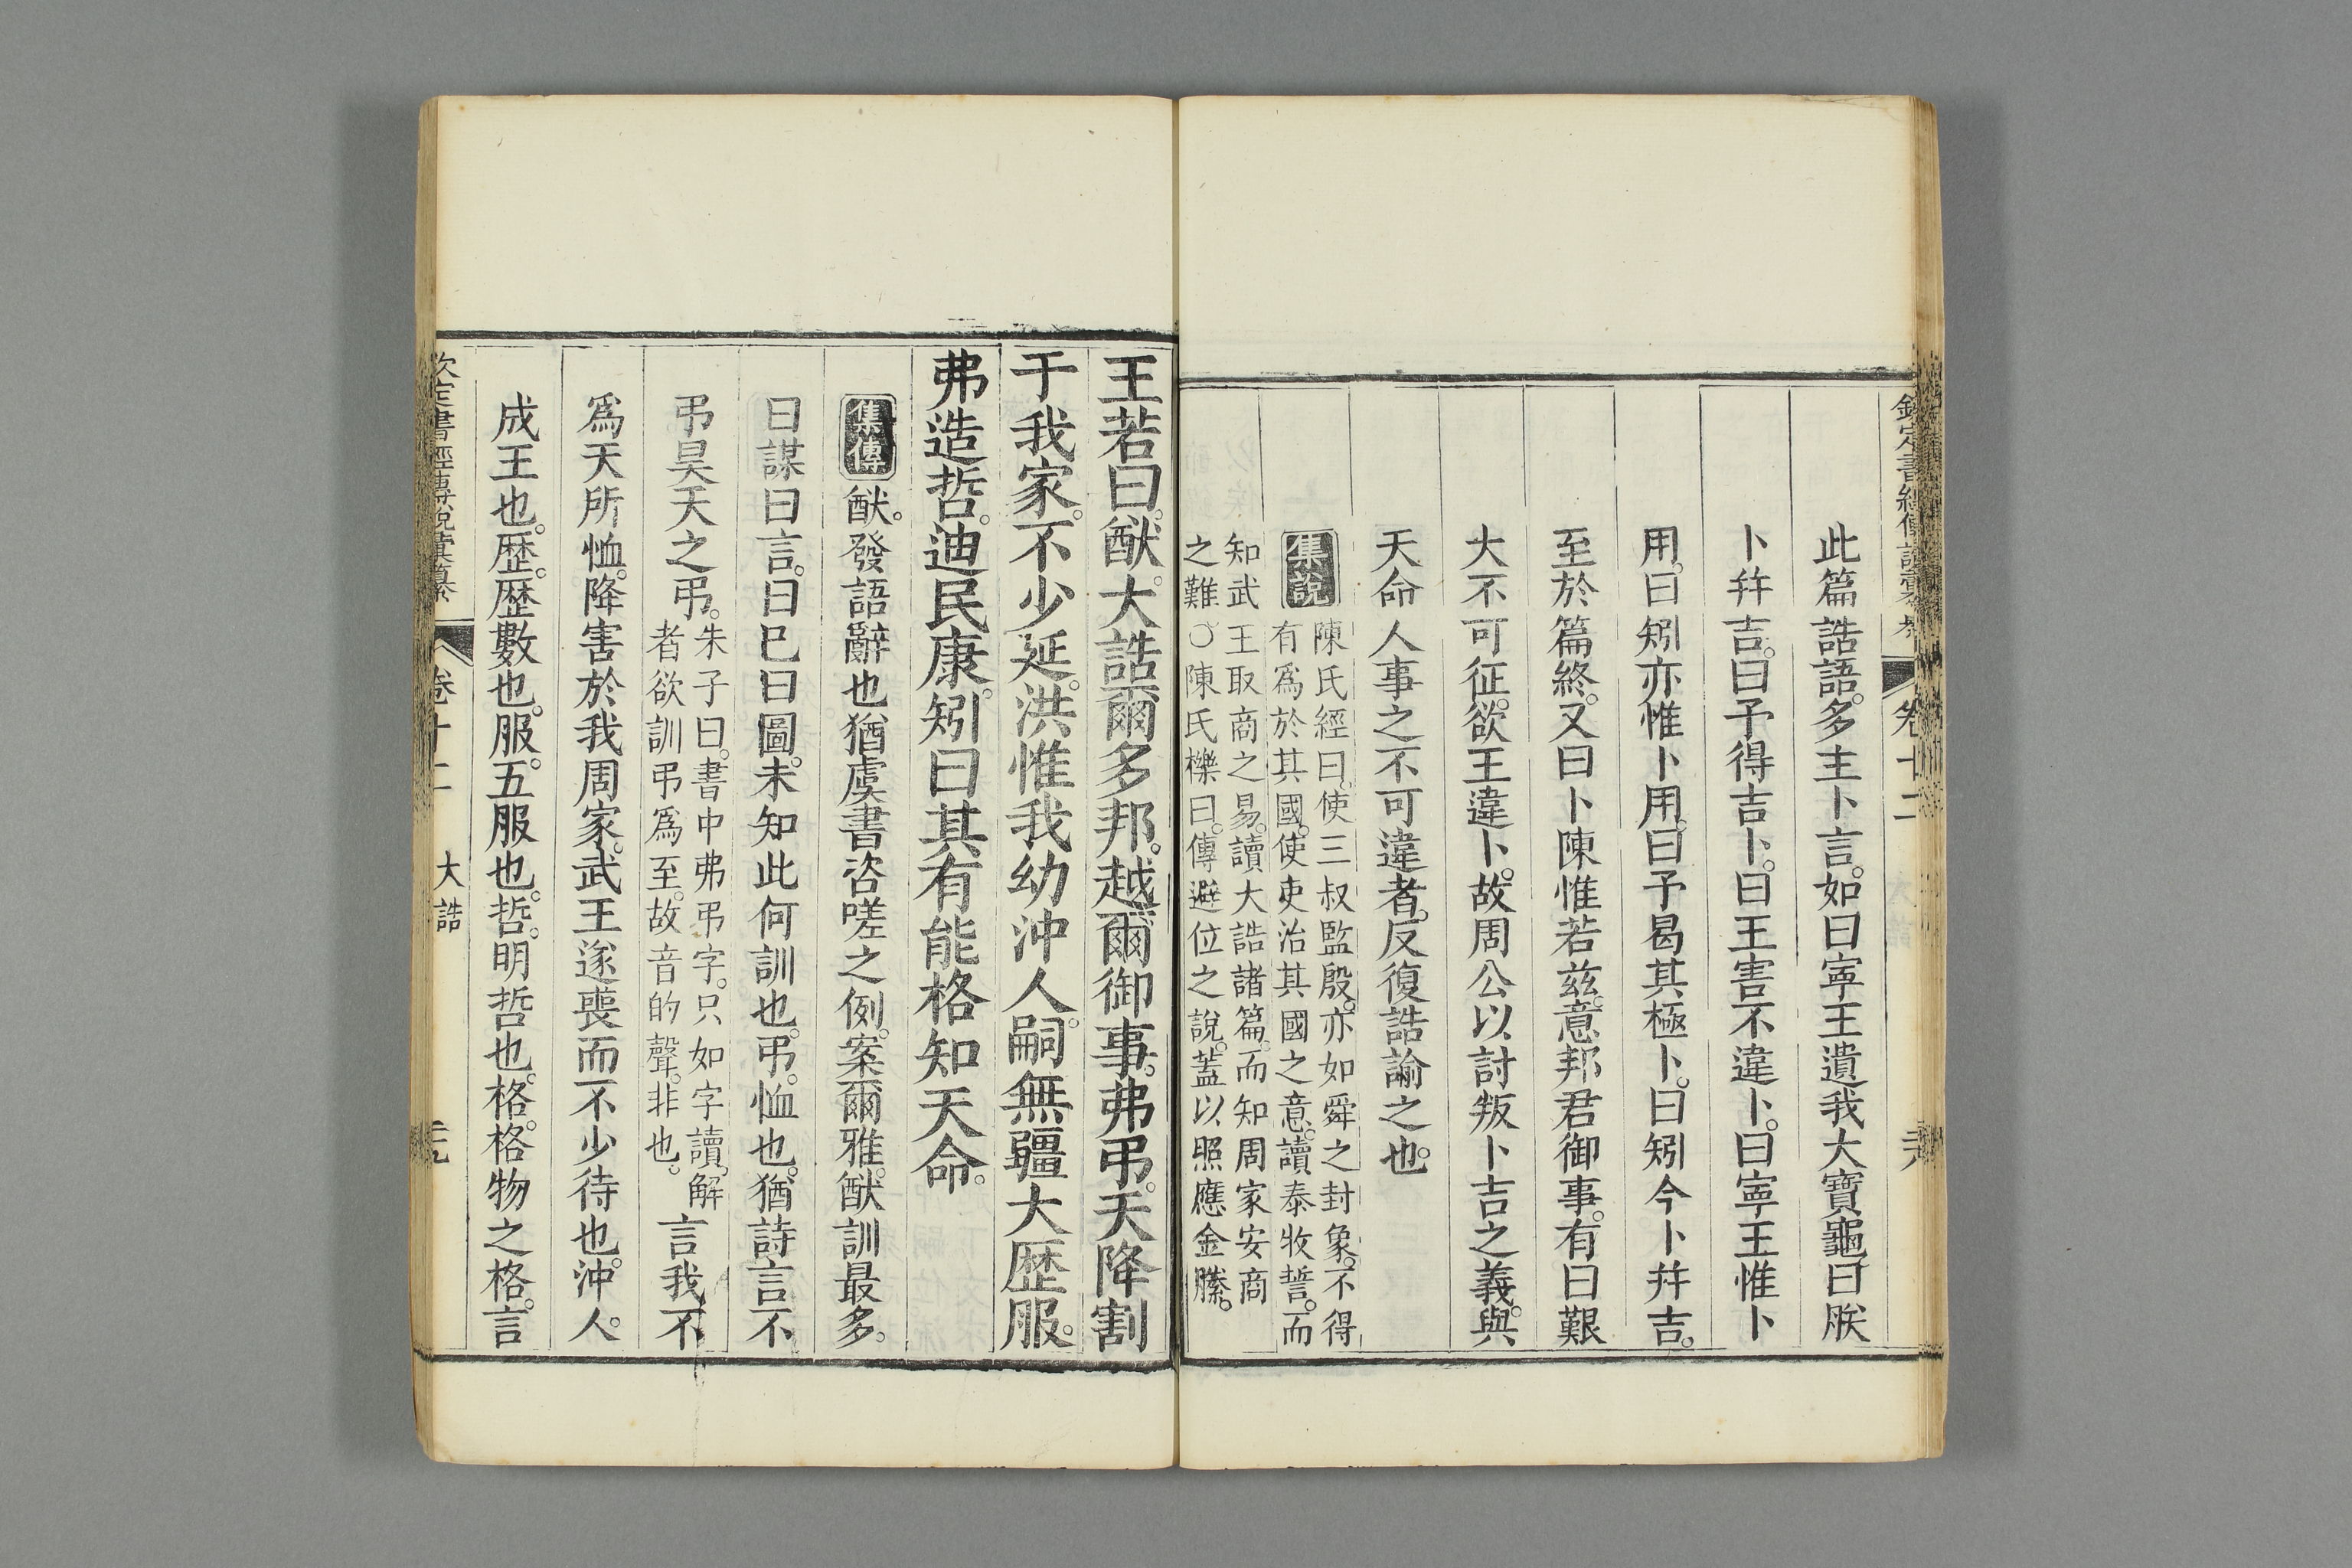 此篇誥語。多主卜言。如曰寧王遺我大寶龜。曰朕
卜幷吉。曰予得吉卜。曰王害不違卜。曰寧王惟卜
用。曰矧亦惟卜用。曰予曷其極卜。曰矧今卜幷吉。
至於篇終。又曰卜陳惟若茲。意邦君御事。有曰艱
大不可征。欲王違卜。故周公以討叛卜吉之義。與
天命人事之不可違者。反復誥諭之也。
集說
陳氏經曰。使三叔監殷。亦如舜之封象。不得
有爲於其國。使吏治其國之意。讀泰牧誓。而
知武王取商之易。讀大誥諸篇。而知周家安商
之難○陳氏櫟曰。傳避位之說。蓋以照應金縢。
王若曰。猷。大誥爾多邦。越爾御事。弗弔。天降割
于我家。不少延。洪惟我幼沖人。嗣無疆大歷服。
弗造哲。迪民康。矧曰其有能格知天命。
集傳 猷。發語辭也猶虞書咨嗟之例。案爾雅。猷訓最多。
曰謀曰言。曰已曰圖。未知此何訓也。弔。恤也。猶詩言不
弔昊天之弔。
朱子曰。書中弗弔字。只如字讀。解
者欲訓弔爲至。故音的聲。非也。
言我不
爲天所恤。降害於我周家。武王遂喪而不少待也。沖人。
成王也。歷。歷數也。服。五服也。哲。明哲也。格。格物之格。言
欽定書經傳說彙纂
卷十二
大誥